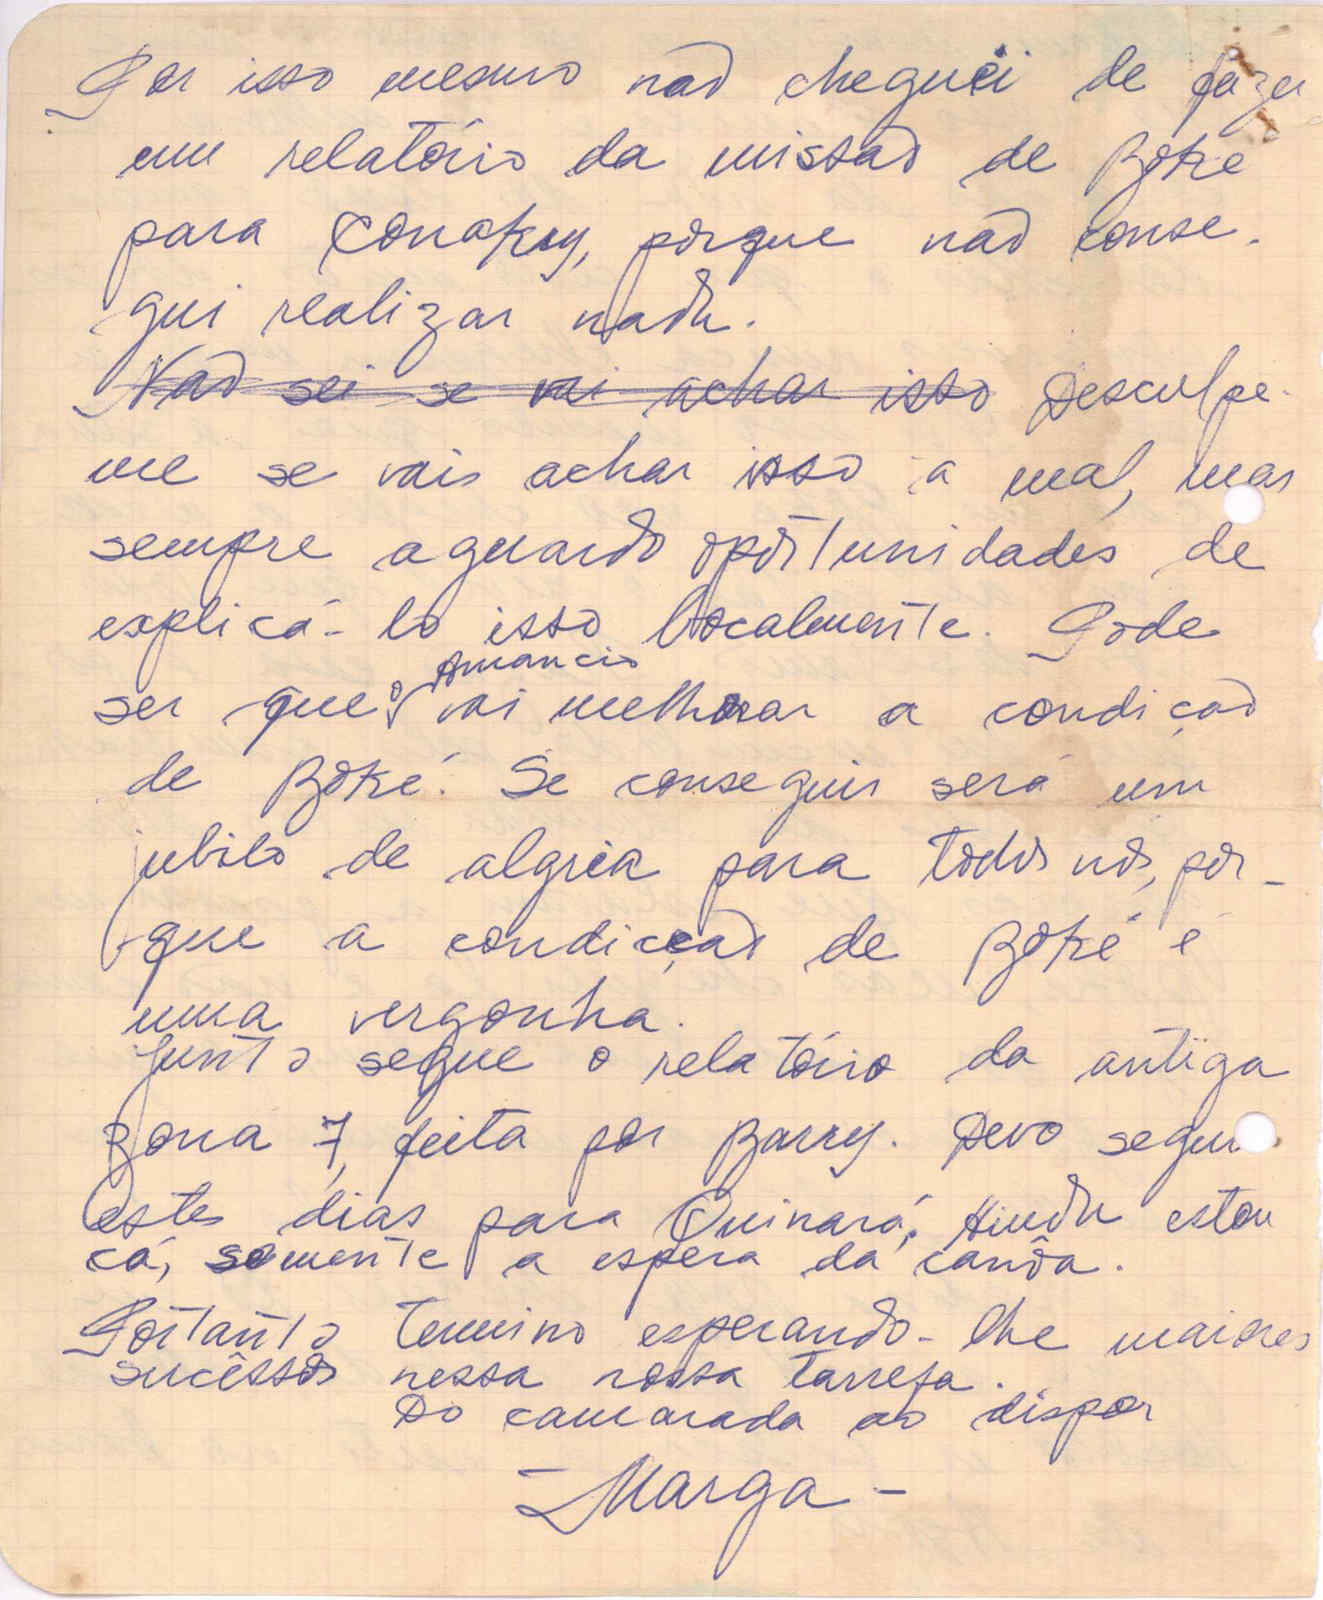 Por isso mesmo não cheguei de fazer
um relatório da missão de Boké
para Conakry, porque não conse-
gui realizar nada.
Não sei se vai achar isso Desculpe-
me se vais achar isso a mal, mas
sempre aguardo oportunidades de
explicá-lo isso localmente. Pode
ser que o Amancio vai melhorar a condição
de Boké. Se conseguir será um
jubilo de algria para todos nós, por-
que a condicção de Boké é
uma vergonha.
Junto segue o relatório da antiga
Zona 7, feita por Barry. Devo seguir
estes dias para Quinará. Ainda estou
cá, somente a espera da canôa.
Portanto termino esperando-lhe maiores
sucêssos nessa nossa tarrefa.
Do camarada ao dispor
- Marga -